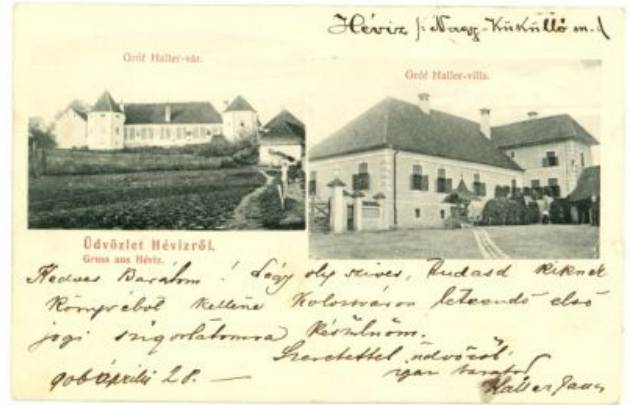 Hévíz (: Nagy-Küküllő m. :)
Gróf Haller-vár.
Gróf Haller-villa.
Üdvözlet Hévizről.
Gruss aus Héviz.
Kedves Barátom! Légy oly szives, tudasd kiknek
könyvéből kellene Kolozsváron leteendő első
jogi szigorlatomra készülnöm.
Szeretettel üdvözöl
igaz barátod
906 április 28. —
Haller János